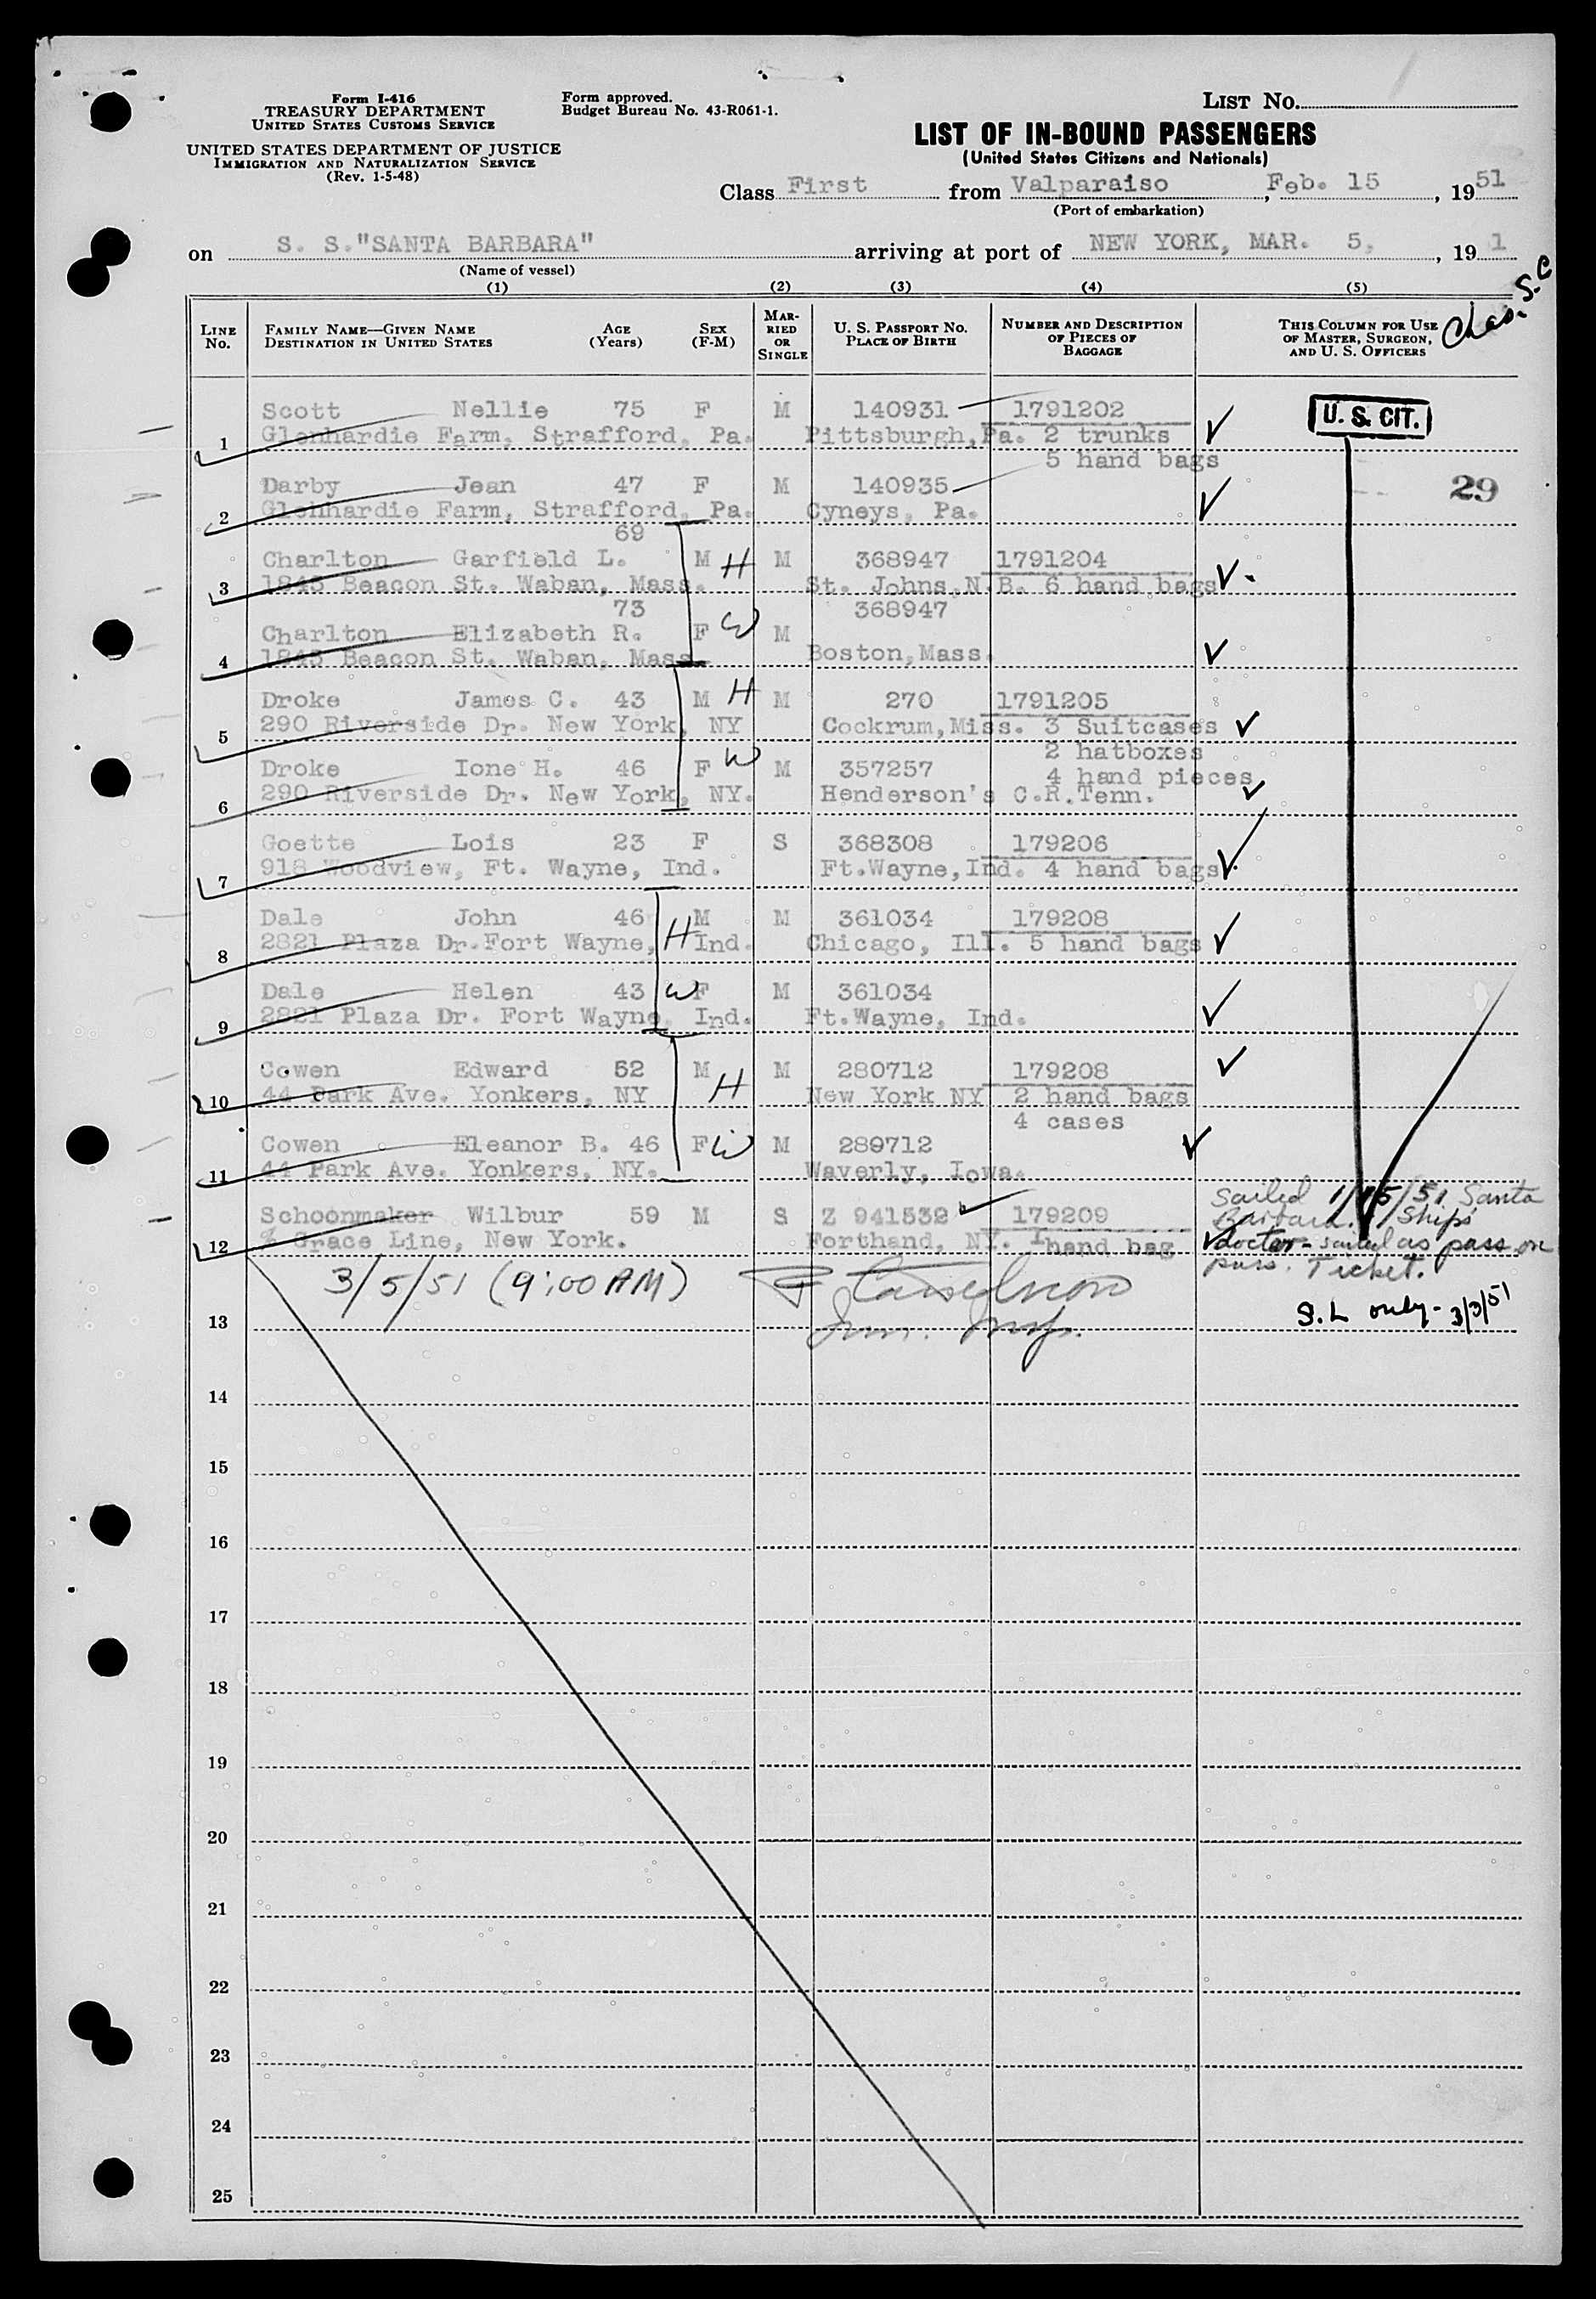 Form I-416
TREASURY DEPARTMENT
UNITED STATES CUSTOMS SERVICE
UNITED STATES DEPARTMENT OF JUSTICE
IMMIGRATION AND NATURALIZATION SERVICE
(Rev. 1-5-48)
Form approved.
Budget Bureau No. 43-R061-1.
LIST No.
LIST OF IN-BOUND PASSENGERS
(United States Citizens and Nationals)
Class First from Valparaiso, Feb. 15, 1951
(Port of embarkation)
on S. S."SANTA BARBARA" arriving at port of NEW YORK, MAR. 5, 19 1
(Name of vessel)
(1) (2) (3) (4) (5)
Chas. S.C
LINE No. FAMILY NAME—GIVEN NAME DESTINATION IN UNITED STATES AGE (Years) SEX (F-M) MARRIED OR SINGLE U. S. PASSPORT NO. PLACE OF BIRTH NUMBER AND DESCRIPTION OF PIECES OF BAGGAGE THIS COLUMN FOR USE OF MASTER, SURGEON, AND U. S. OFFICERS
Scott Nellie 75 F M 140931 1791202 U. S. CIT.
1 Glenhardie Farm, Strafford, Pa. Pittsburgh,Pa. 2 trunks
5 hand bags
Darby Jean 47 F M 140935 29
2 Glenhardie Farm, Strafford, Pa. Cyneys, Pa.
69
Charlton Garfield L. M H M 368947 1791204
3 1843 Beacon St. Waban, Mass. St. Johns,N.B. 6 hand bags
73 368947
Charlton Elizabeth R. F W M
4 1843 Beacon St. Waban, Mass. Boston,Mass.
Droke James C. 43 M H M 270 1791205
5 290 Riverside Dr. New York, NY Cockrum,Miss. 3 Suitcases
2 hatboxes
Droke Ione H. 46 F W M 357257 4 hand pieces
6 290 Riverside Dr. New York, NY. Henderson's C.R.Tenn.
Goette Lois 23 F S 368308 179206
7 918 Woodview, Ft. Wayne, Ind. Ft.Wayne,Ind. 4 hand bags
Dale John 46 M M 361034 179208
8 2821 Plaza Dr.Fort Wayne, H Ind. Chicago, Ill. 5 hand bags
Dale Helen 43 W F M 361034
9 2821 Plaza Dr. Fort Wayne, Ind. Ft.Wayne, Ind.
Cowen Edward 52 M H M 280712 179208
10 44 Park Ave. Yonkers, NY New York NY 2 hand bags
4 cases
Cowen Eleanor B. 46 F W M 280712
11 44 Park Ave. Yonkers, NY. Waverly, Iowa.
Schoonmaker Wilbur 59 M S Z 941532 179209
12 % Grace Line, New York. Forthand, NY. 1 hand bag
Sailed 1/15/51 Santa
Barbara. Ships
doctor - sailed as pass on
pass. Ticket.
3/5/51 (9:00 AM)
Imm. Insp.
S.L only - 3/3/51
13
14
15
16
17
18
19
20
21
22
23
24
25